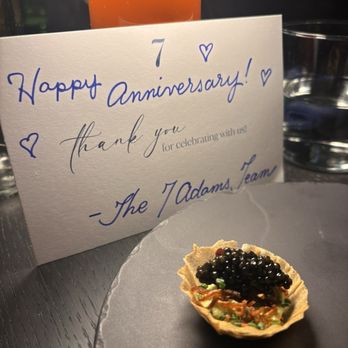 7
Happy Anniversary!
thank you
for celebrating with us!
- The 7 Adams Team